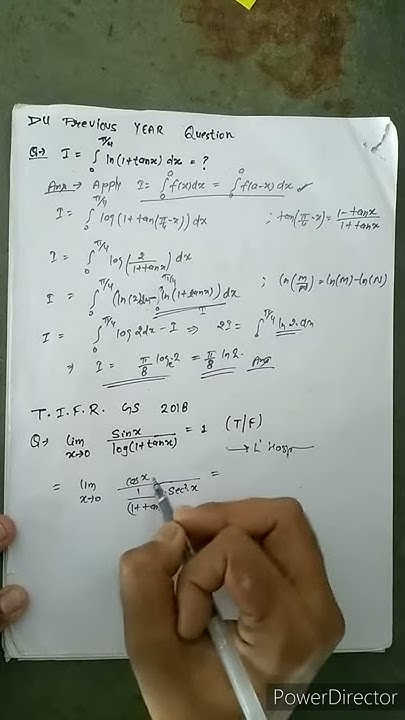 DU Previous YEAR Question
Q→ I = ∫₀^π/4 ln(1+tanx) dx = ?
Ans → Apply I = ∫₀^a f(x)dx = ∫₀^a f(a-x)dx ✓
I = ∫₀^π/4 log(1+tan(π/4-x)) dx ; tan(π/4-x) = (1-tanx)/(1+tanx)
I = ∫₀^π/4 log(2/(1+tanx)) dx
I = ∫₀^π/4 ln(2)dx - ∫₀^π/4 ln(1+tanx) dx ; ln(M/N) = ln(M)-ln(N)
I
I = ∫₀^π/4 log2dx - I ⇒ 2I = ∫₀^π/4 ln2.dx
⇒ I = π/8 logₑ2 = π/8 ln2. Ans
T.I.F.R. GS 2018
Q→ lim x→0 Sinx/log(1+tanx) = 1 (T/F)
→ L' Hosp
= lim x→0 cosx/(1/(1+tan Sec²x =
PowerDirector